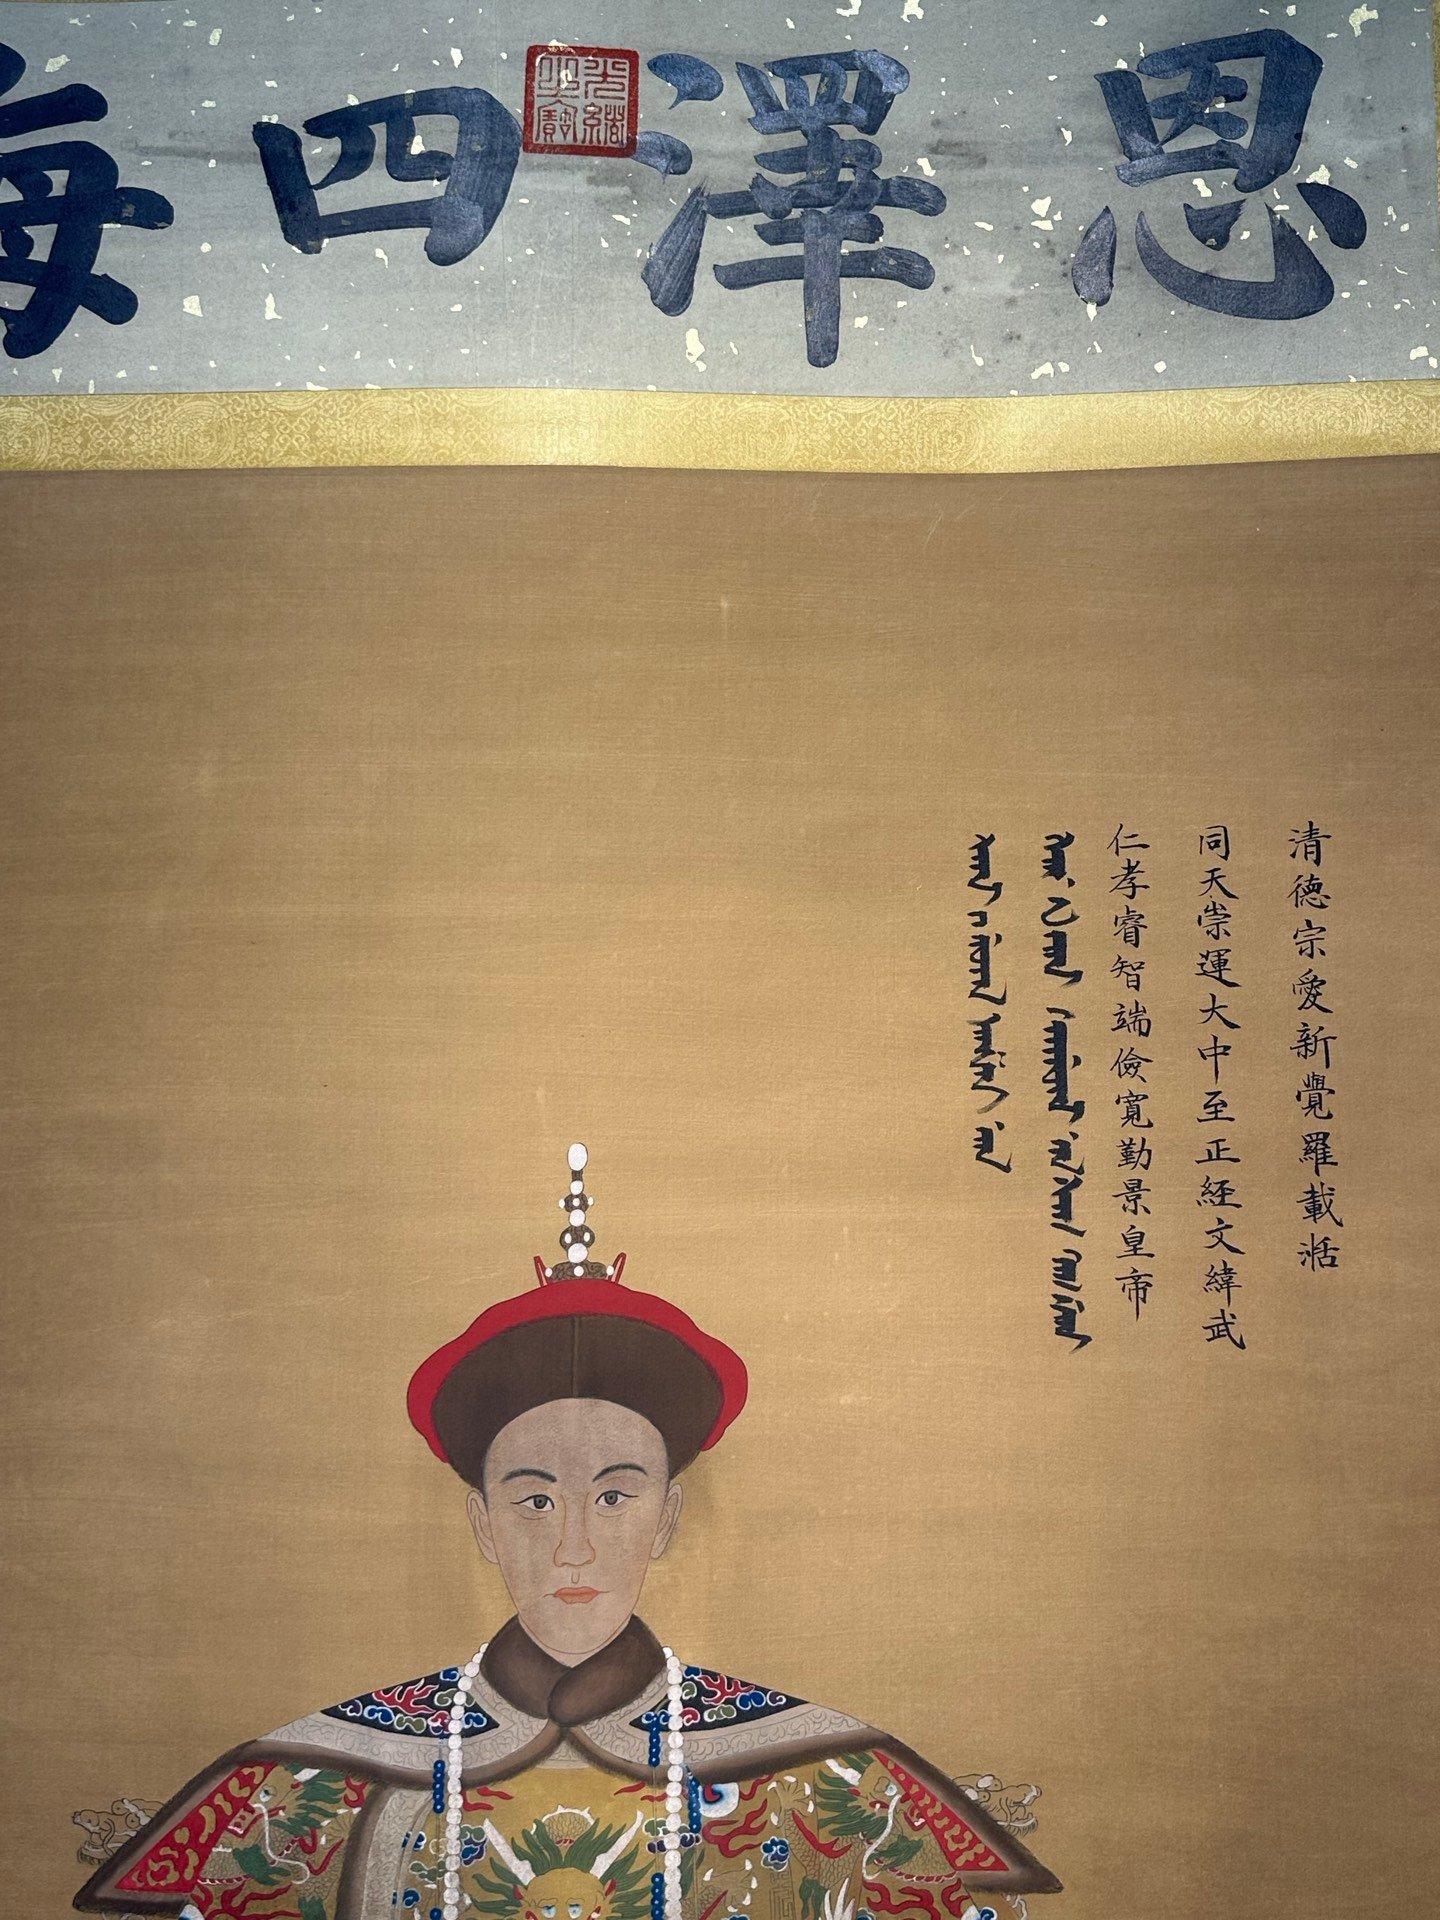 恩澤四海
光緒之寶
清德宗愛新覺羅載湉
同天崇運大中至正經文緯武
仁孝睿智端儉寬勤景皇帝